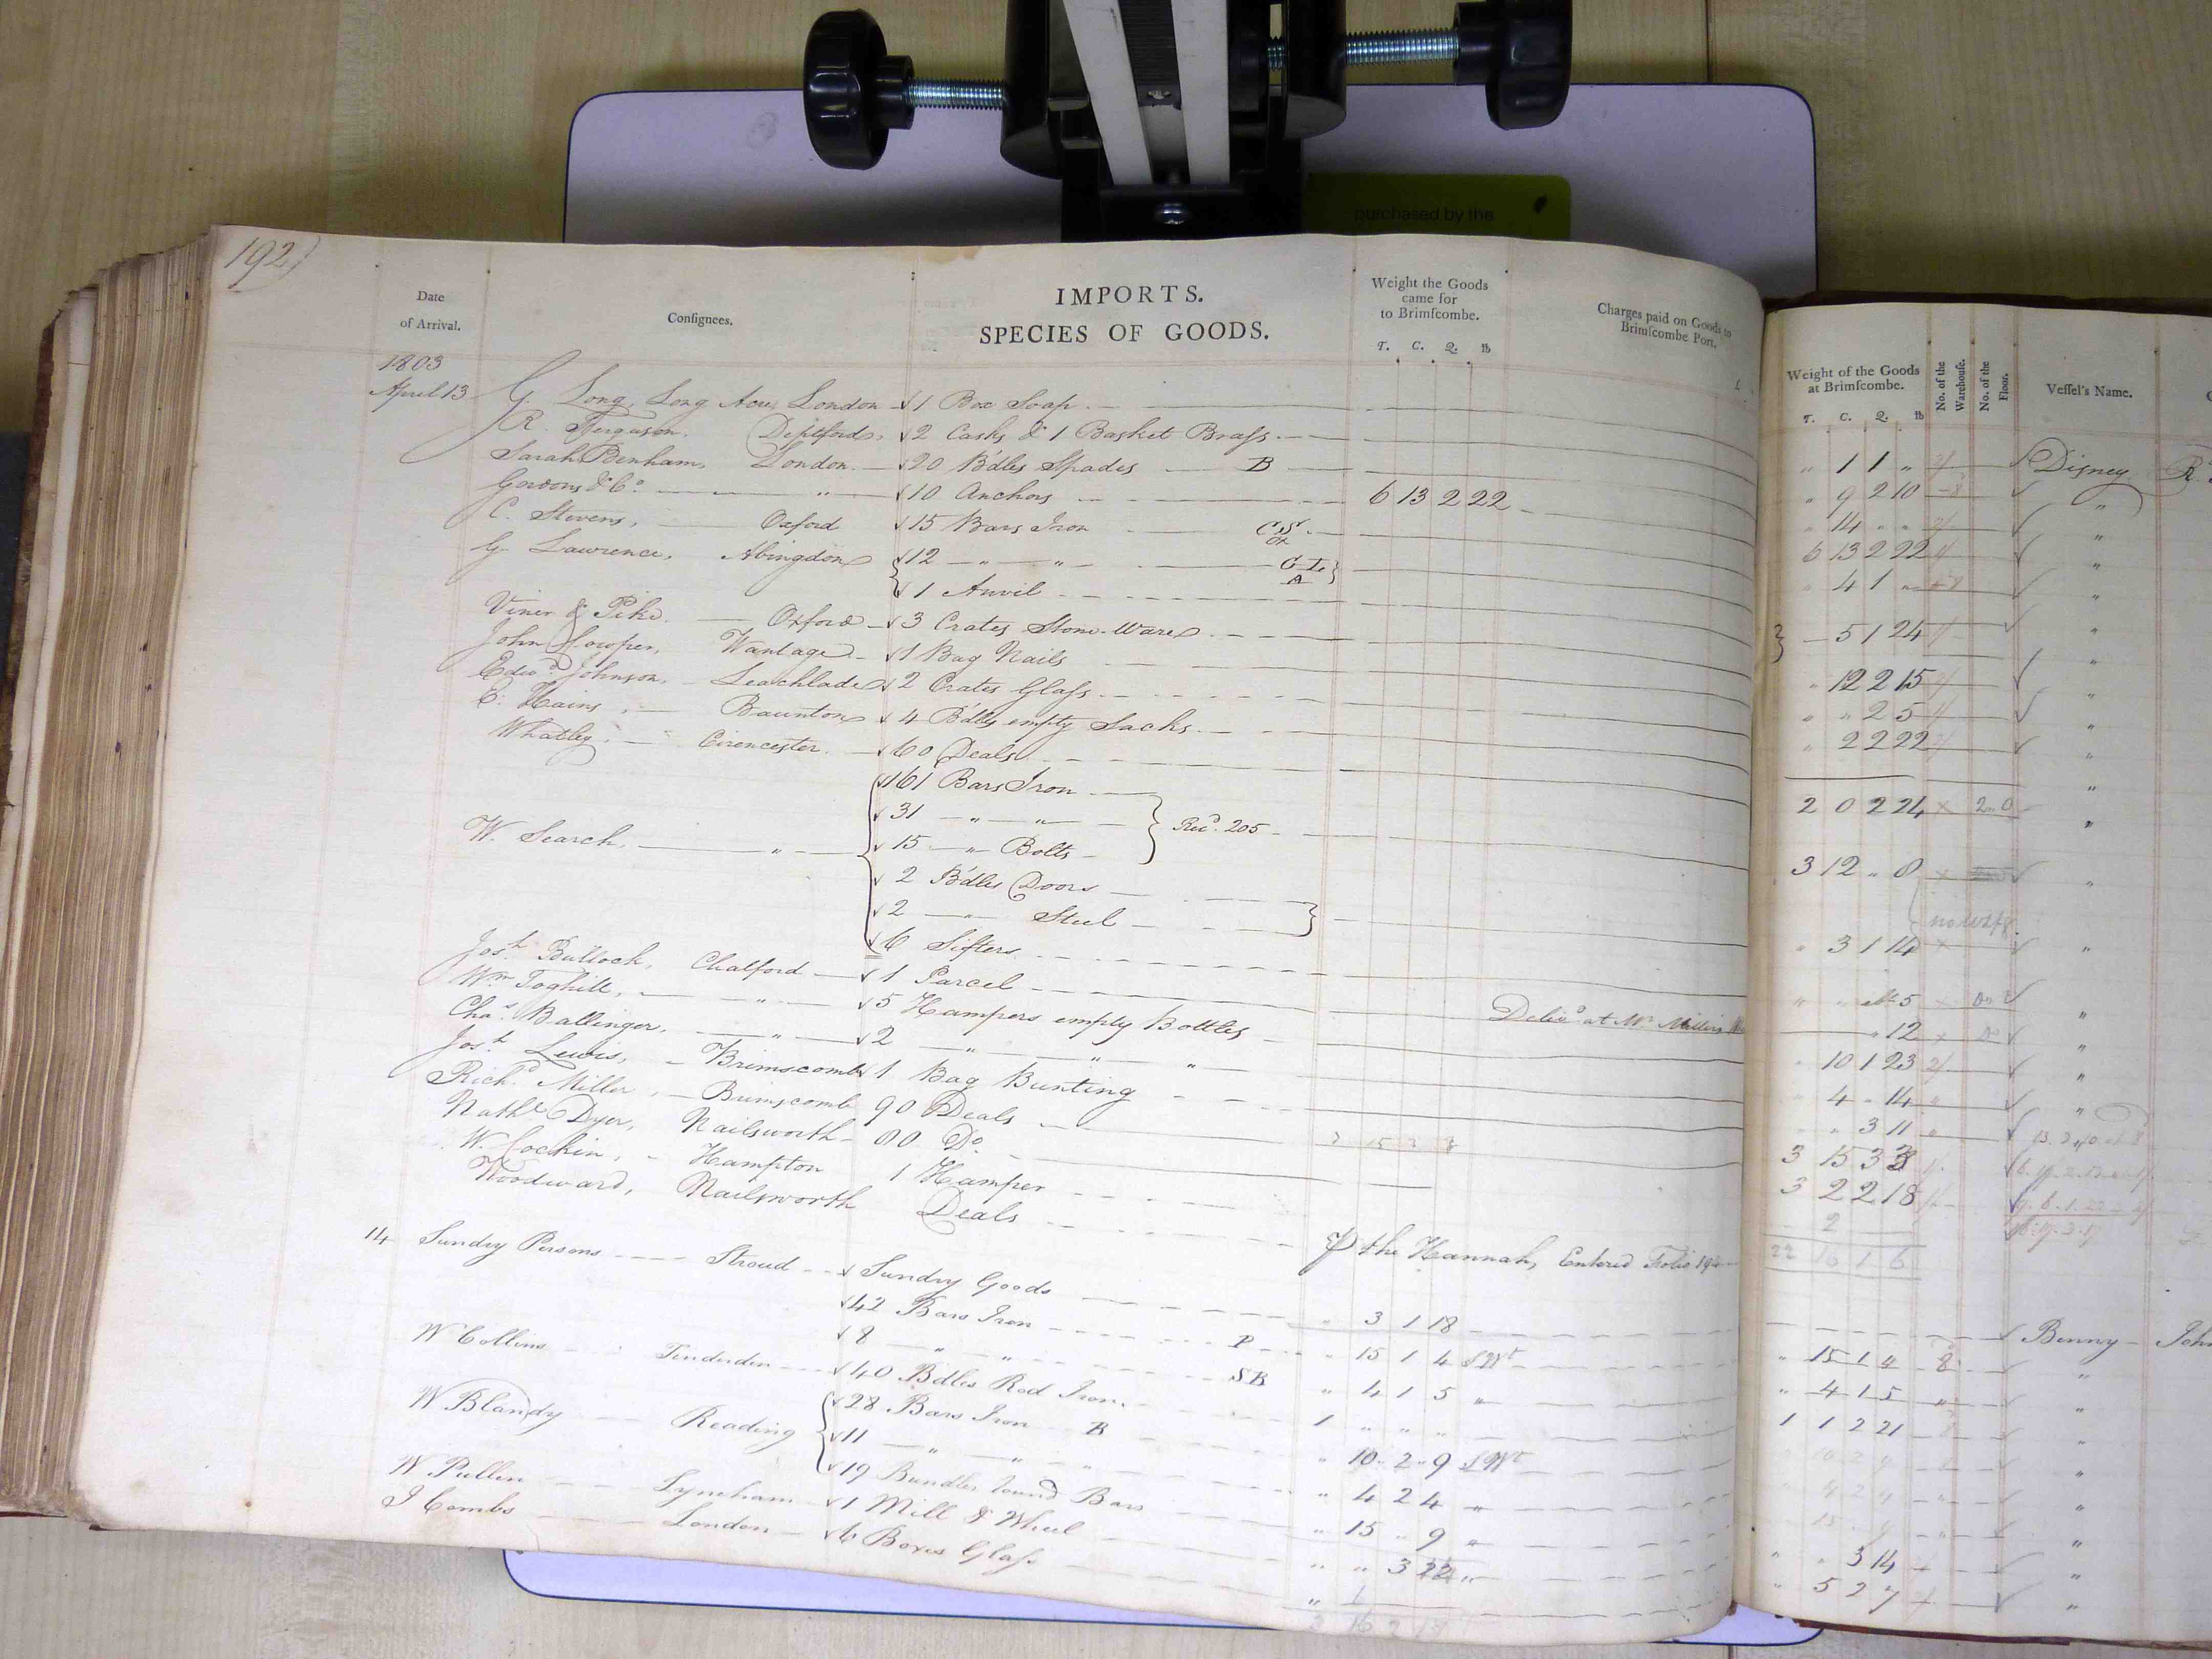 purchased by the
192)
Date of Arrival. Consignees. IMPORTS. SPECIES OF GOODS. Weight the Goods came for to Brimscombe. T. C. Q. lb Charges paid on Goods to Brimscombe Port. Weight of the Goods at Brimscombe. T. C. Q. lb No. of the Warehouse. No. of the Floor. Vessel's Name.
1803
April 13 G. Long, Long Acre, London 1 Box Soap 1 1 " Disney
R. Ferguson, Deptford, 2 Casks & 1 Basket Brass 9 2 10 "
Sarah Benham, London 20 Bdles Spades B 14 " " "
Gordons & Co. " 10 Anchors 6 13 2 22 6 13 2 22 "
C. Stevens, Oxford 15 Bars Iron 4 1 " "
G. Lawrence, Abingdon 12 " " G L A
1 Anvil 5 1 24 "
Viner & Pike Oxford 3 Crates Stone Ware 12 2 15 "
John Cowper, Wantage 1 Bag Nails " " 2 5 "
Edwd. Johnson, Leachlade 2 Crates Glass " 2 2 22 "
E. Hains, Baunton 4 Bdles empty Sacks "
Whatley Cirencester 60 Deals 2 0 2 24 "
161 Bars Iron
31 " "
W. Search, " 15 " Bolts Recd. 205 3 12 " 0 "
2 Bdles Doors
2 " Steel
6 Sifters 3 1 14 "
Josh. Bullock, Chalford 1 Parcel
Wm. Toghill, " 5 Hampers empty Bottles Delivd. at Mr. Millers
Chas. Ballinger, " 2 " " " "
Josh. Lewis, Brimscomb 1 Bag Bunting
Richd. Miller, Brimscomb 90 Deals 3 15 3 8
Nathl. Dyer, Nailsworth 80 Do. 3 2 2 18
W. Cockin, Hampton 1 Hamper
Woodward, Nailsworth Deals
14 Sundry Persons Stroud Sundry Goods P the Hannah, Entered Folio Benny
42 Bars Iron " 3 1 18
8 " " P " 15 1 4 S Wt " 15 1 4 "
W Collins Tenderden 40 Bdles Rod Iron SB " 4 1 5 " " 4 1 5 "
28 Bars Iron B 1 " " " 1 1 2 21 "
W Blandy Reading 11 " " " 10 2 9 S Wt "
19 Bundles round Bars " 4 2 4 " "
W Pullen Lyneham 1 Mill & Wheel " 15 " 9 " "
J Combs London 6 Boxes Glass " " 3 22 " " " 3 14 "
" 5 2 7 "